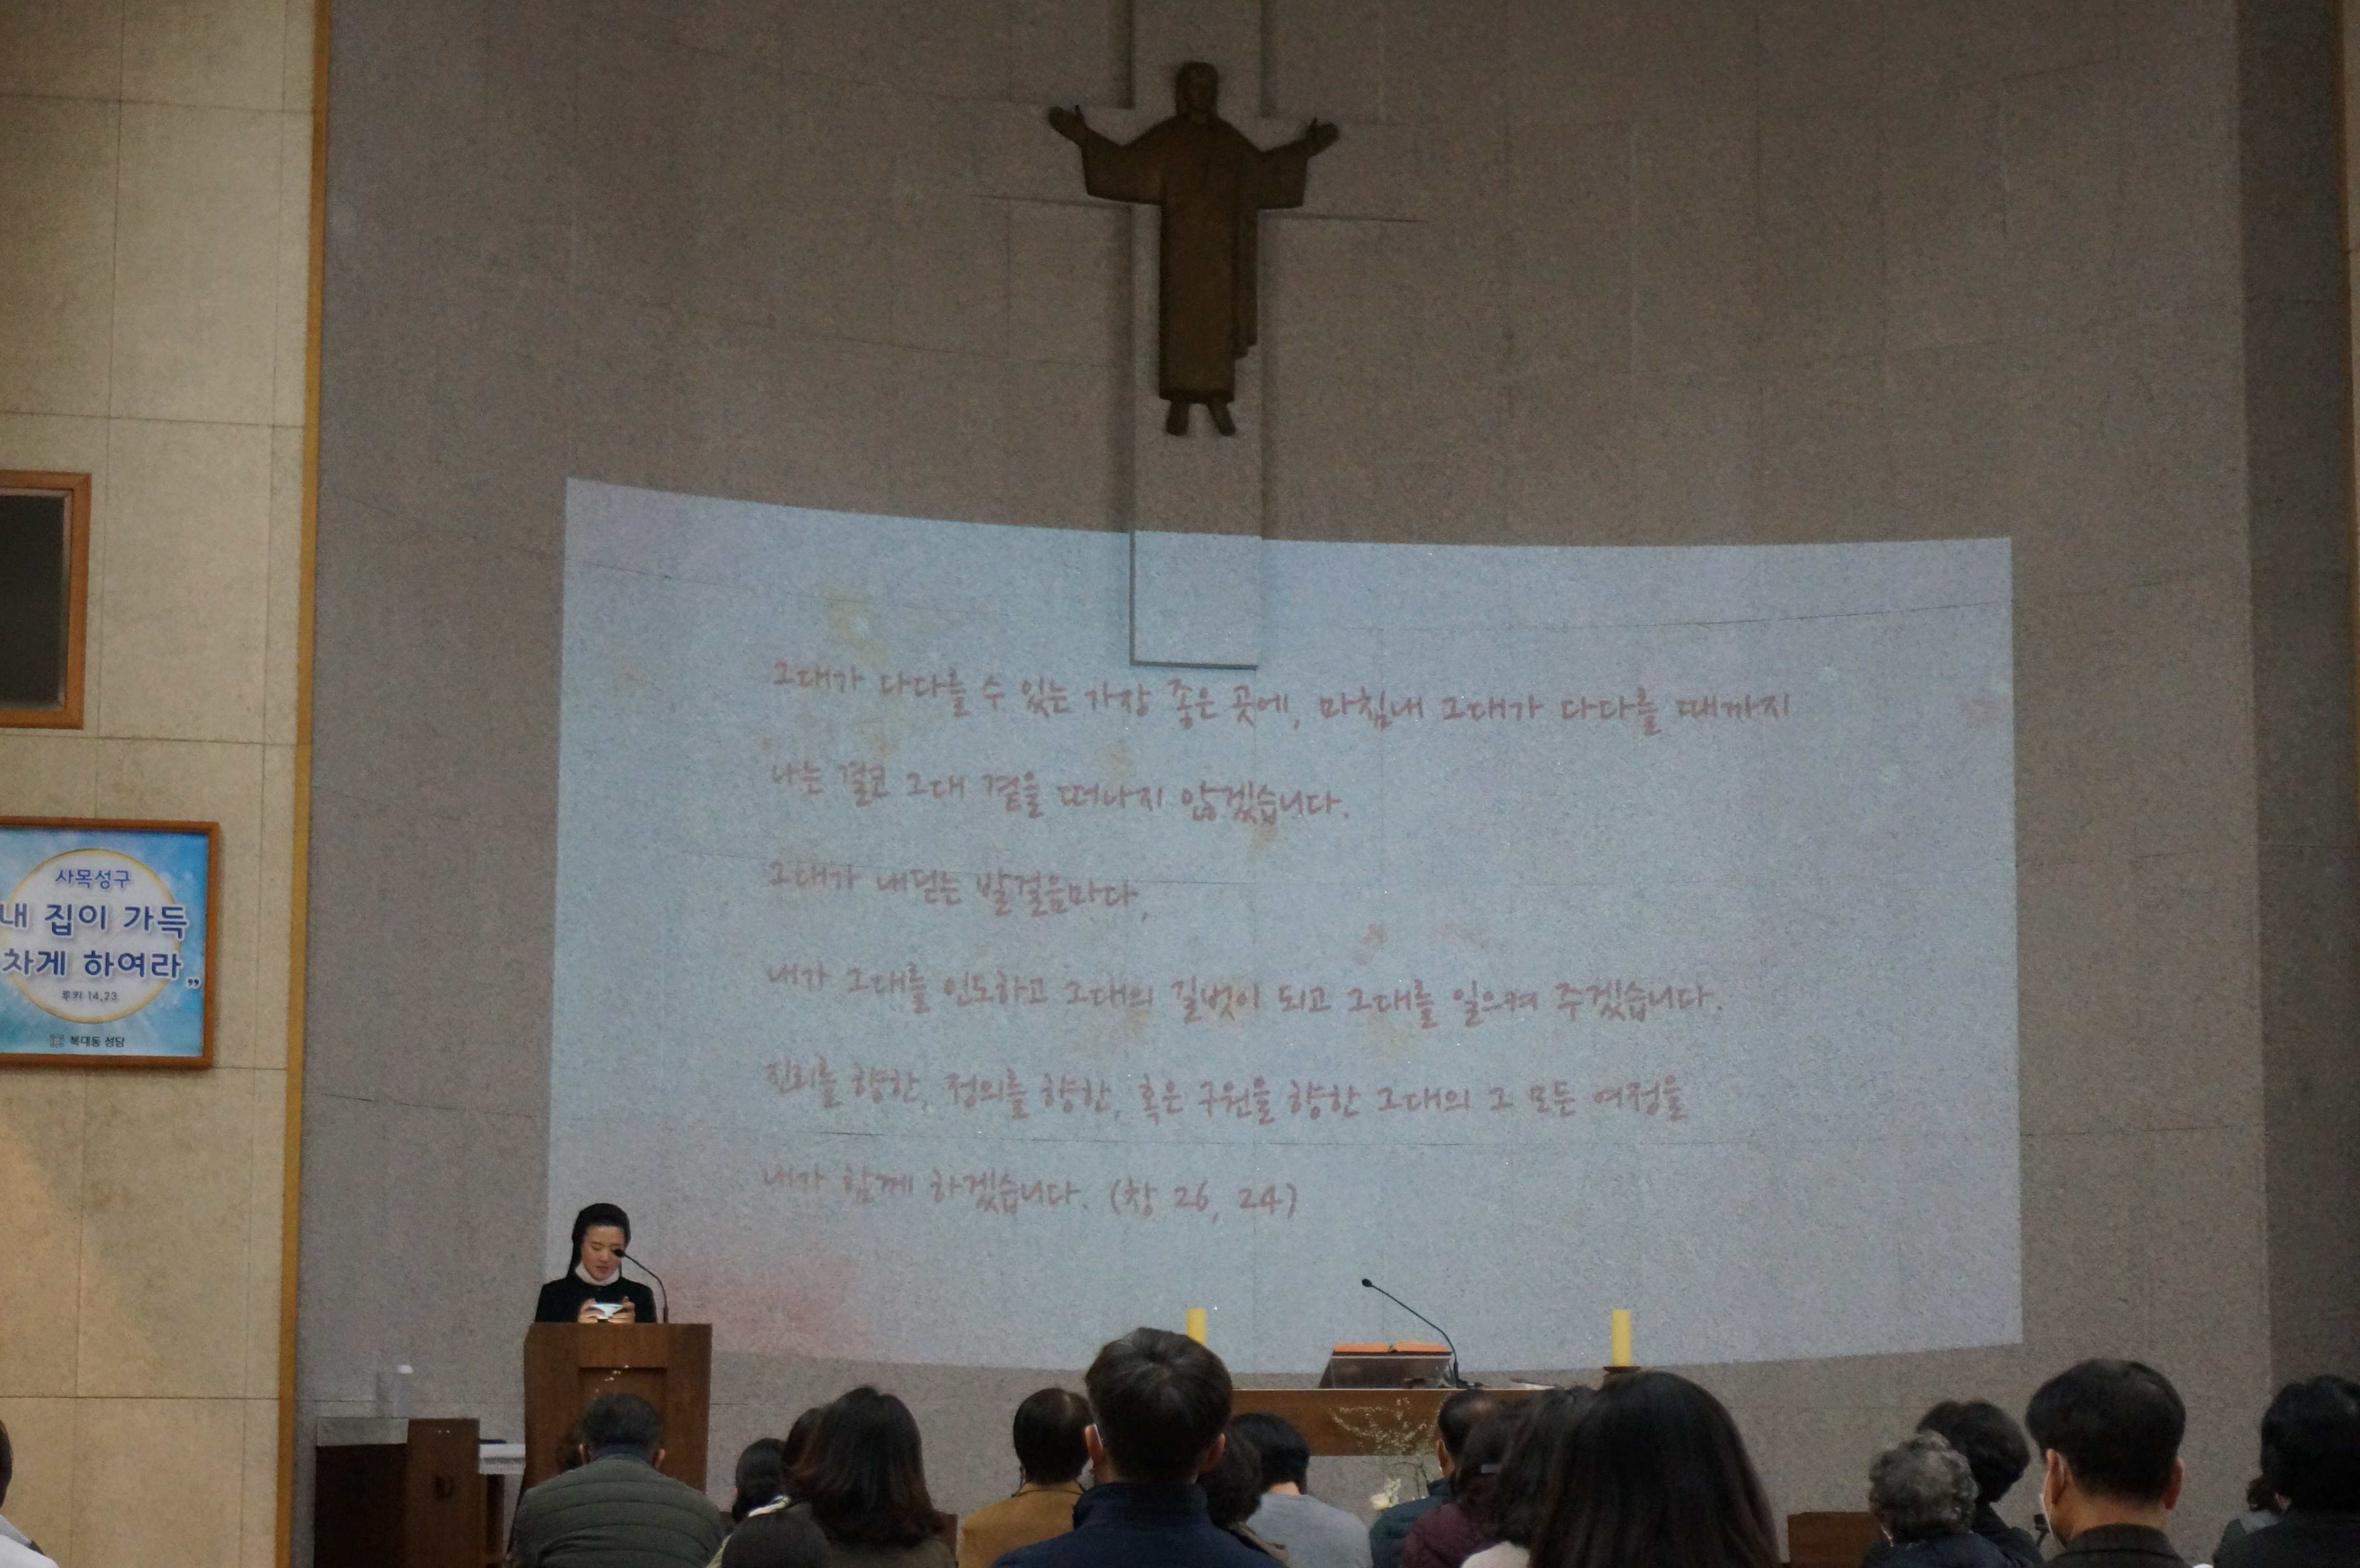 그대가 다다를 수 있는 가장 좋은 곳에, 마침내 그대가 다다를 때까지
나는 결코 그대 곁을 떠나지 않겠습니다.
그대가 내딛는 발걸음마다,
내가 그대를 인도하고 그대의 길벗이 되고 그대를 일으켜 주겠습니다.
진리를 향한, 정의를 향한, 혹은 구원을 향한 그대의 그 모든 여정을
내가 함께 하겠습니다. (창 26, 24)
사목성구
내 집이 가득
차게 하여라”
루카 14,23
복대동 성당